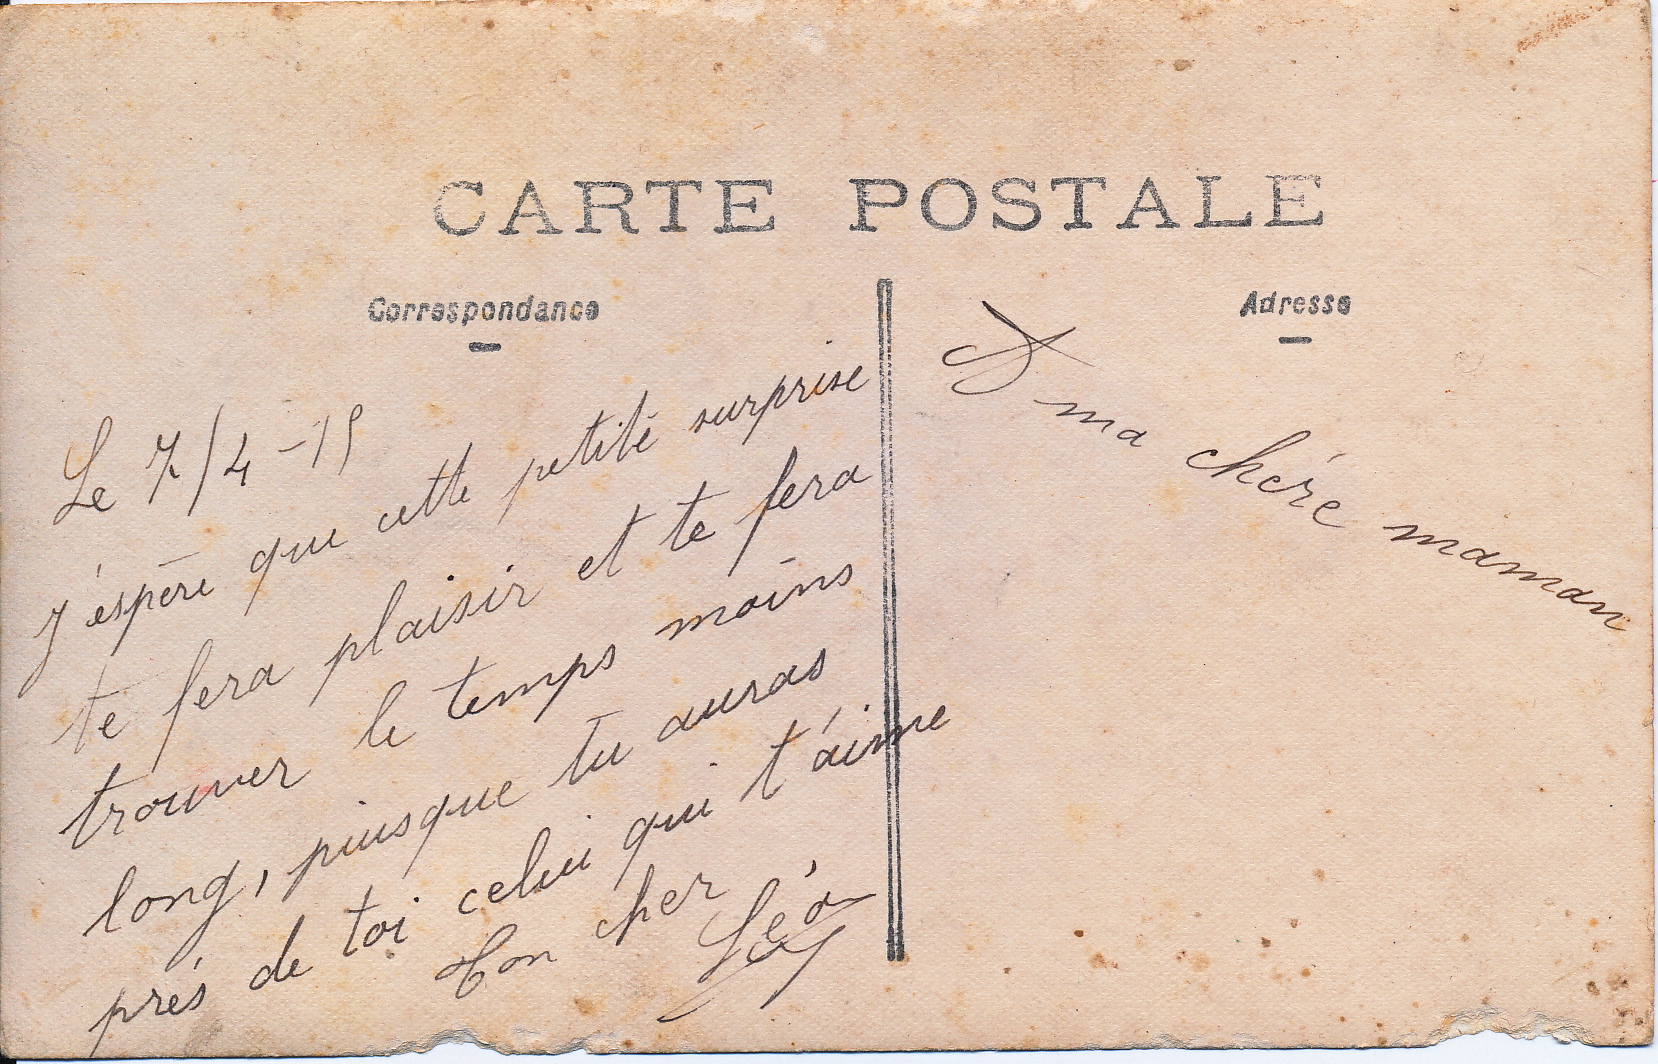 CARTE POSTALE
Correspondance
Adresse
Le 7/4-15
J'éspère que cette petite surprise
te fera plaisir et te fera
trouver le temps moins
long, puisque tu auras
prés de toi celui qui t'aime
Ton cher Léon
A ma chére maman